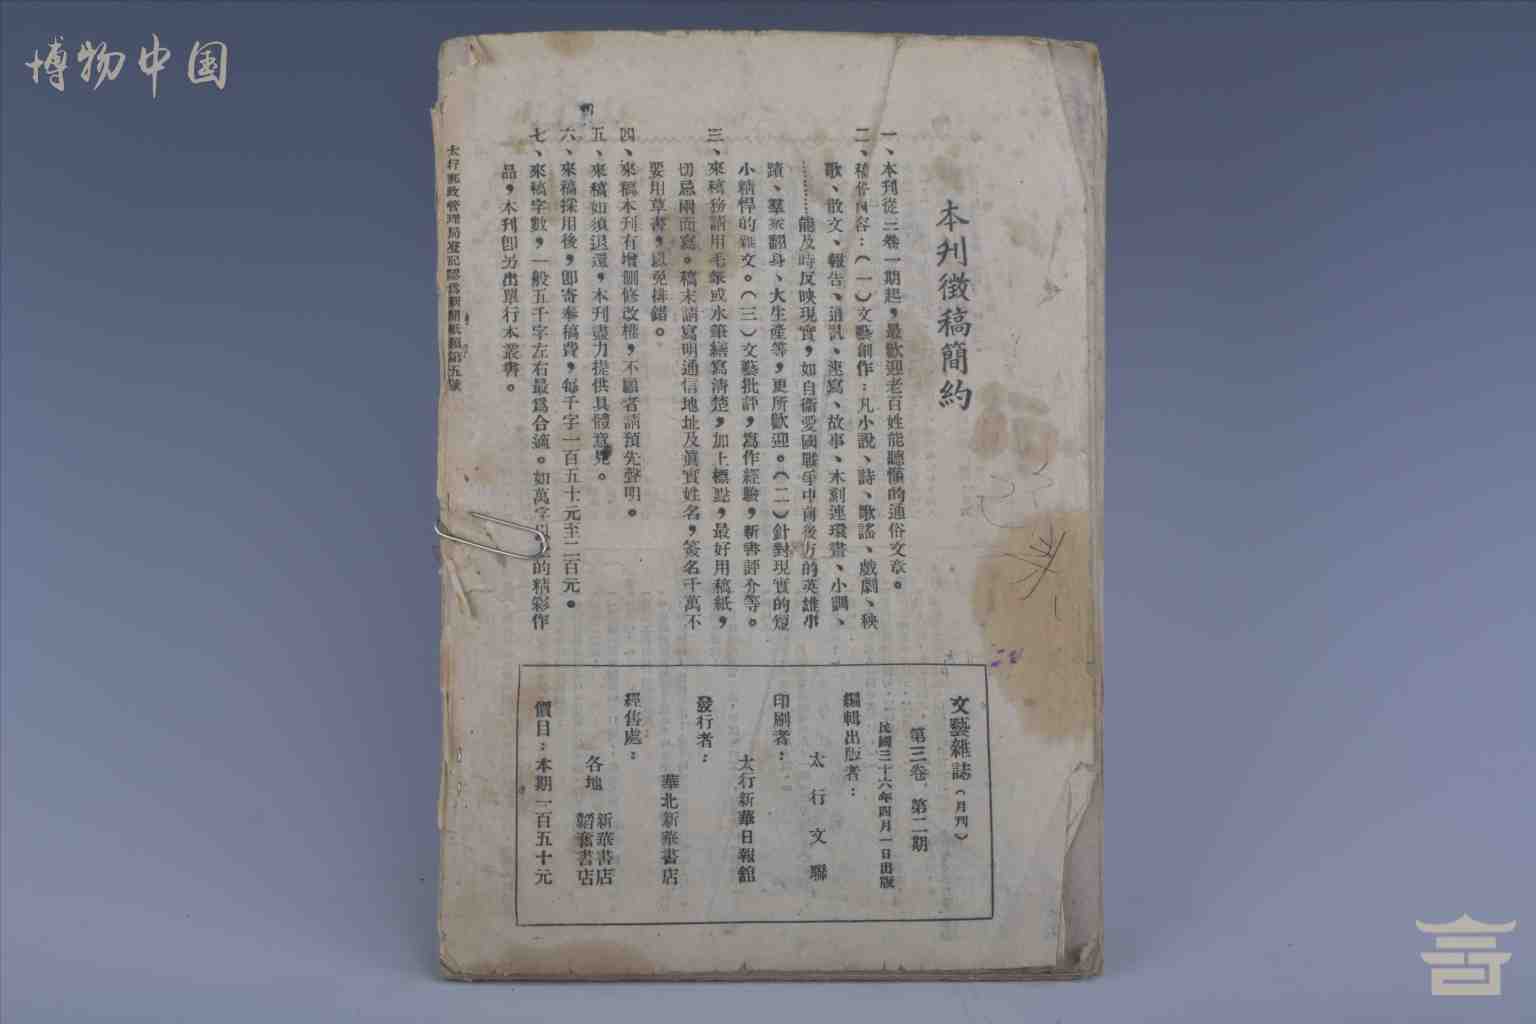 博物中国
本刊徵稿簡約
一、本刊從三卷一期起，最歡迎老百姓能聽懂的通俗文章。
二、稿件內容：（一）文藝創作：凡小說、詩、歌謠、戲劇、秧
歌、散文、報告、通訊、速寫、故事、木刻連環畫、小調、
…………能及時反映現實，如自衞愛國戰爭中前後方的英雄事
蹟、羣衆翻身、大生產等，更所歡迎。（二）針對現實的短
小精悍的雜文。（三）文藝批評，寫作經驗，新書評介等。
三、來稿務請用毛筆或水筆繕寫清楚，加上標點，最好用稿紙，
切忌兩面寫。稿末請寫明通信地址及眞實姓名，簽名千萬不
要用草書，以免排錯。
四、來稿本刊有增删修改權，不願者請預先聲明。
五、來稿如須退還，本刊盡力提供具體意見。
六、來稿採用後，即寄奉稿費，每千字一百五十元至二百元。
七、來稿字數，一般五千字左右最爲合適。如萬字以上的精彩作
品，本刊即另出單行本叢書。
太行郵政管理局登記認爲新聞紙類第五號
文藝雜誌（月刊）
第三卷 第二期
民國三十六年四月一日出版
編輯出版者：
太行文聯
印刷者：
太行新華日報館
發行者：
華北新華書店
經售處：
各地 新華書店
韜奮書店
價目：本期一百五十元